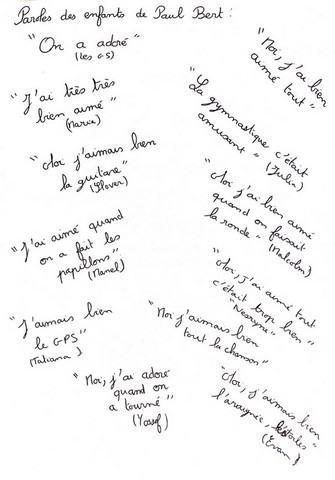 Paroles des enfants de Paul Bert :
"On a adoré"
(Les GS)
"J'ai très très
bien aimé"
(Marie)
"Moi j'aimais bien
la guitare"
"J'ai aimé quand
on a fait les
papillons"
(Manel)
"J'aimais bien
le GPS"
(Tatiana)
"Moi, j'ai adoré
quand on
a tourné"
(Yossef)
"Moi, j'ai bien
aimé tout"
"La gymnastique c'était
amusant"
(Julen)
"Moi j'ai bien aimé
quand on faisait
la ronde"
(Malcolm)
"Moi, j'ai aimé tout
c'était trop bien"
"Moi j'aimais bien
tout la chanson"
"Moi, j'aimais bien
l'araignée, étoiles
(Evan)